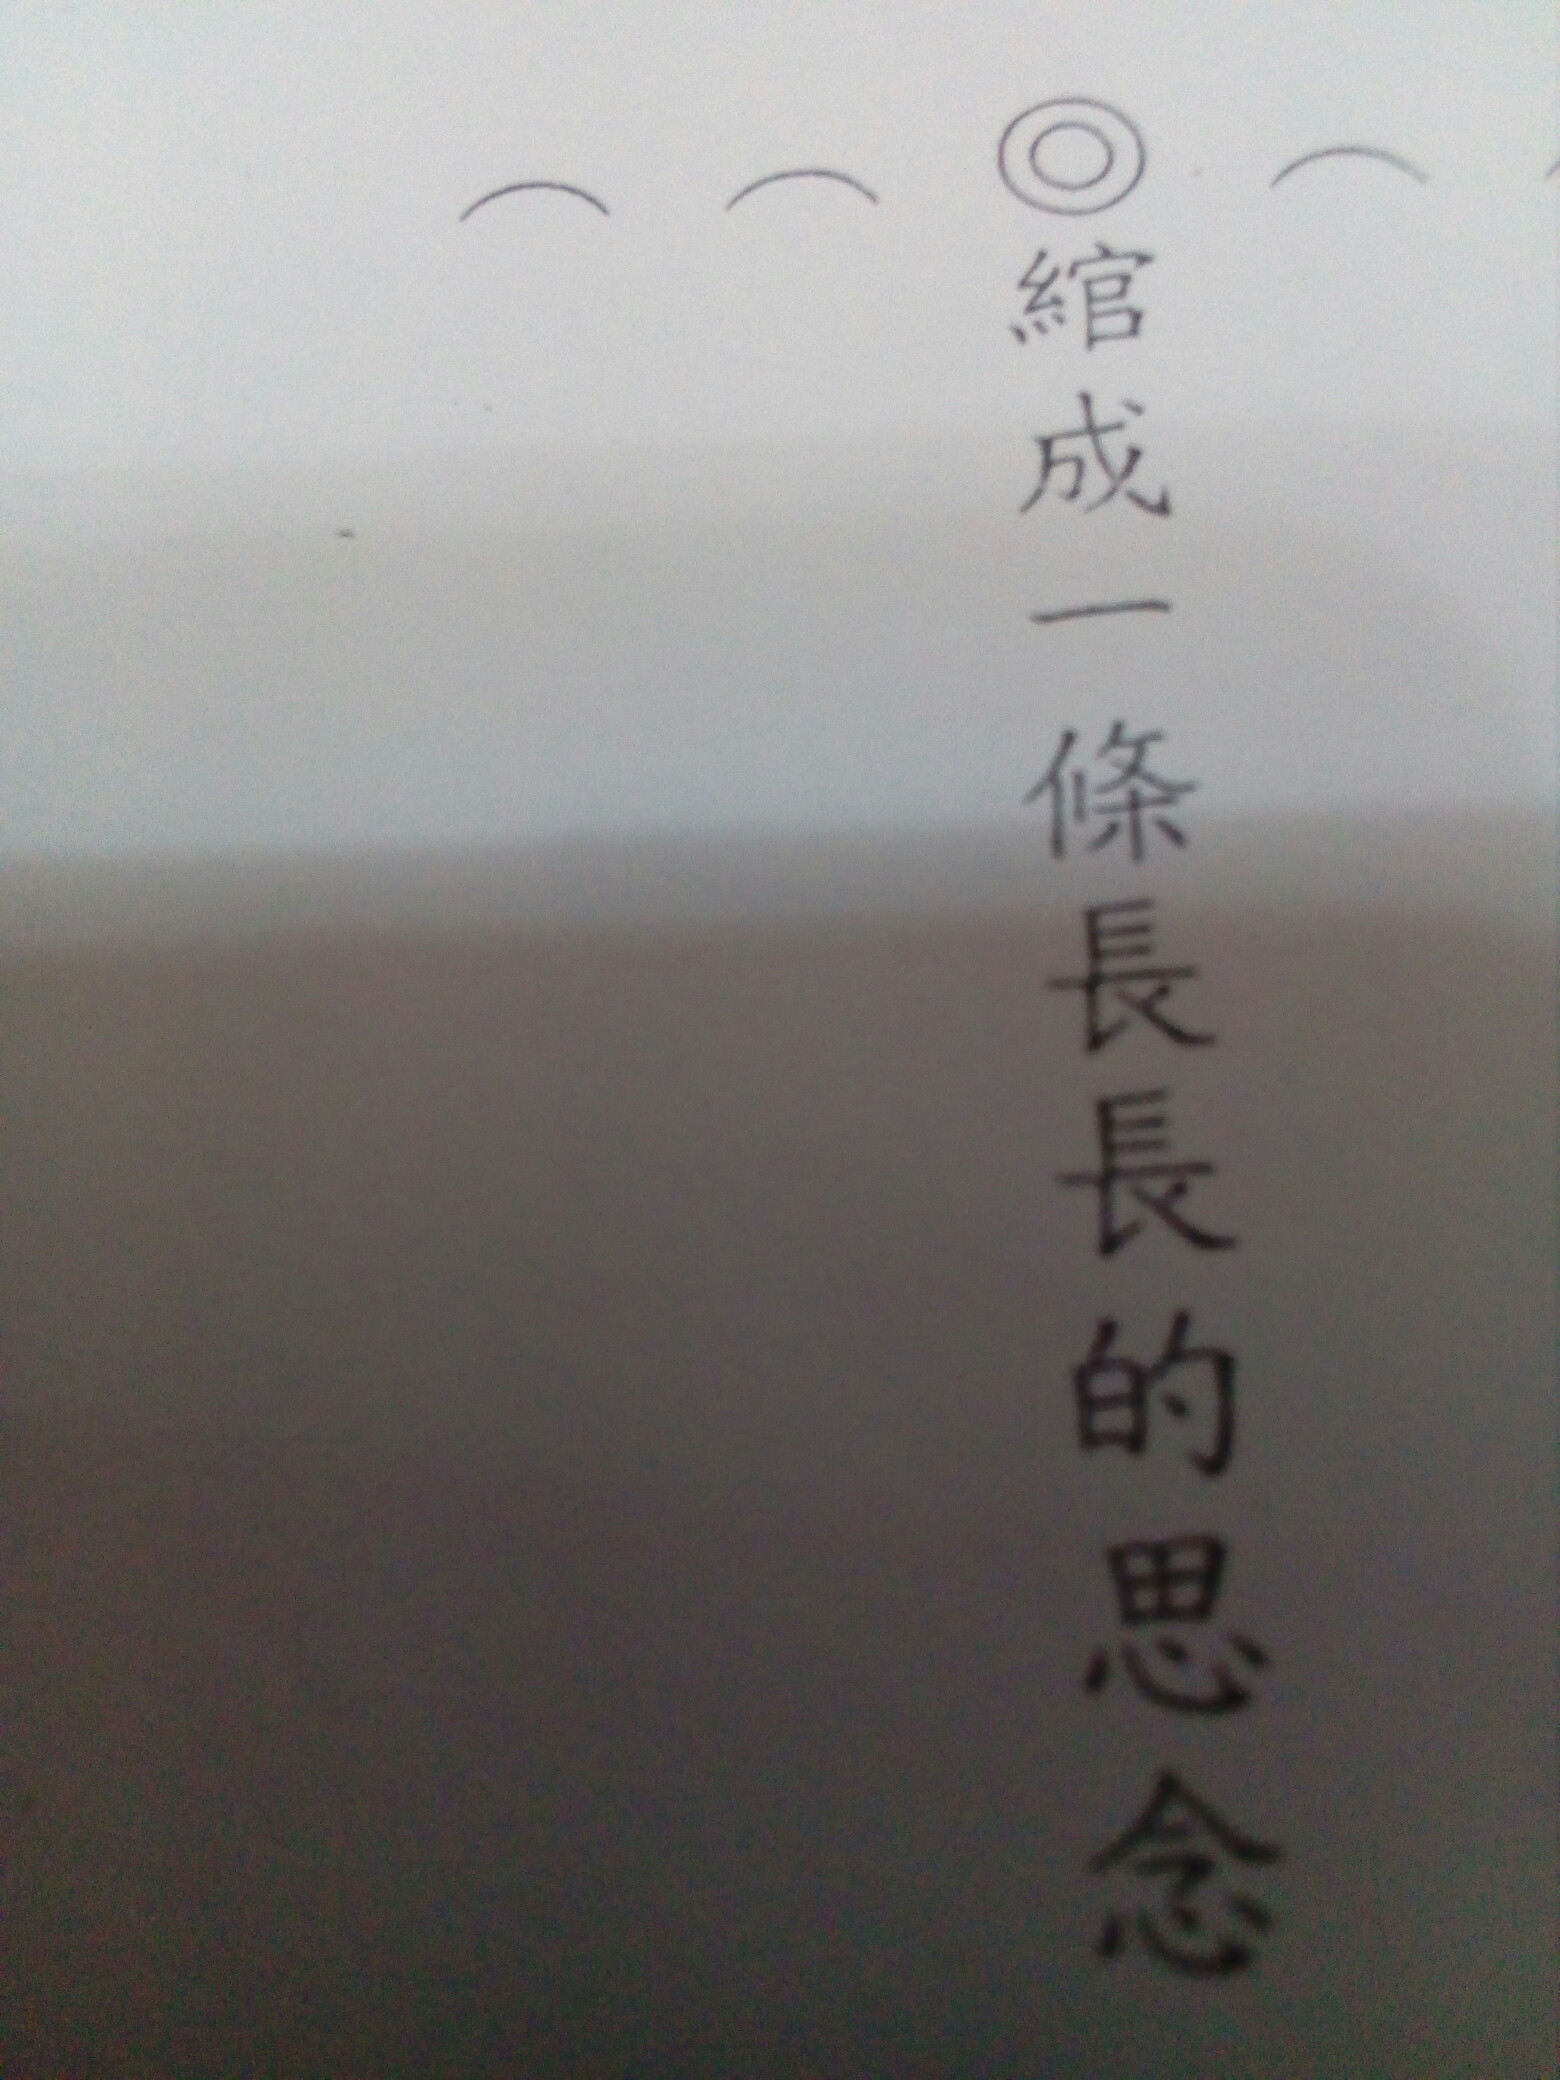 ◎綰成一條長長的思念